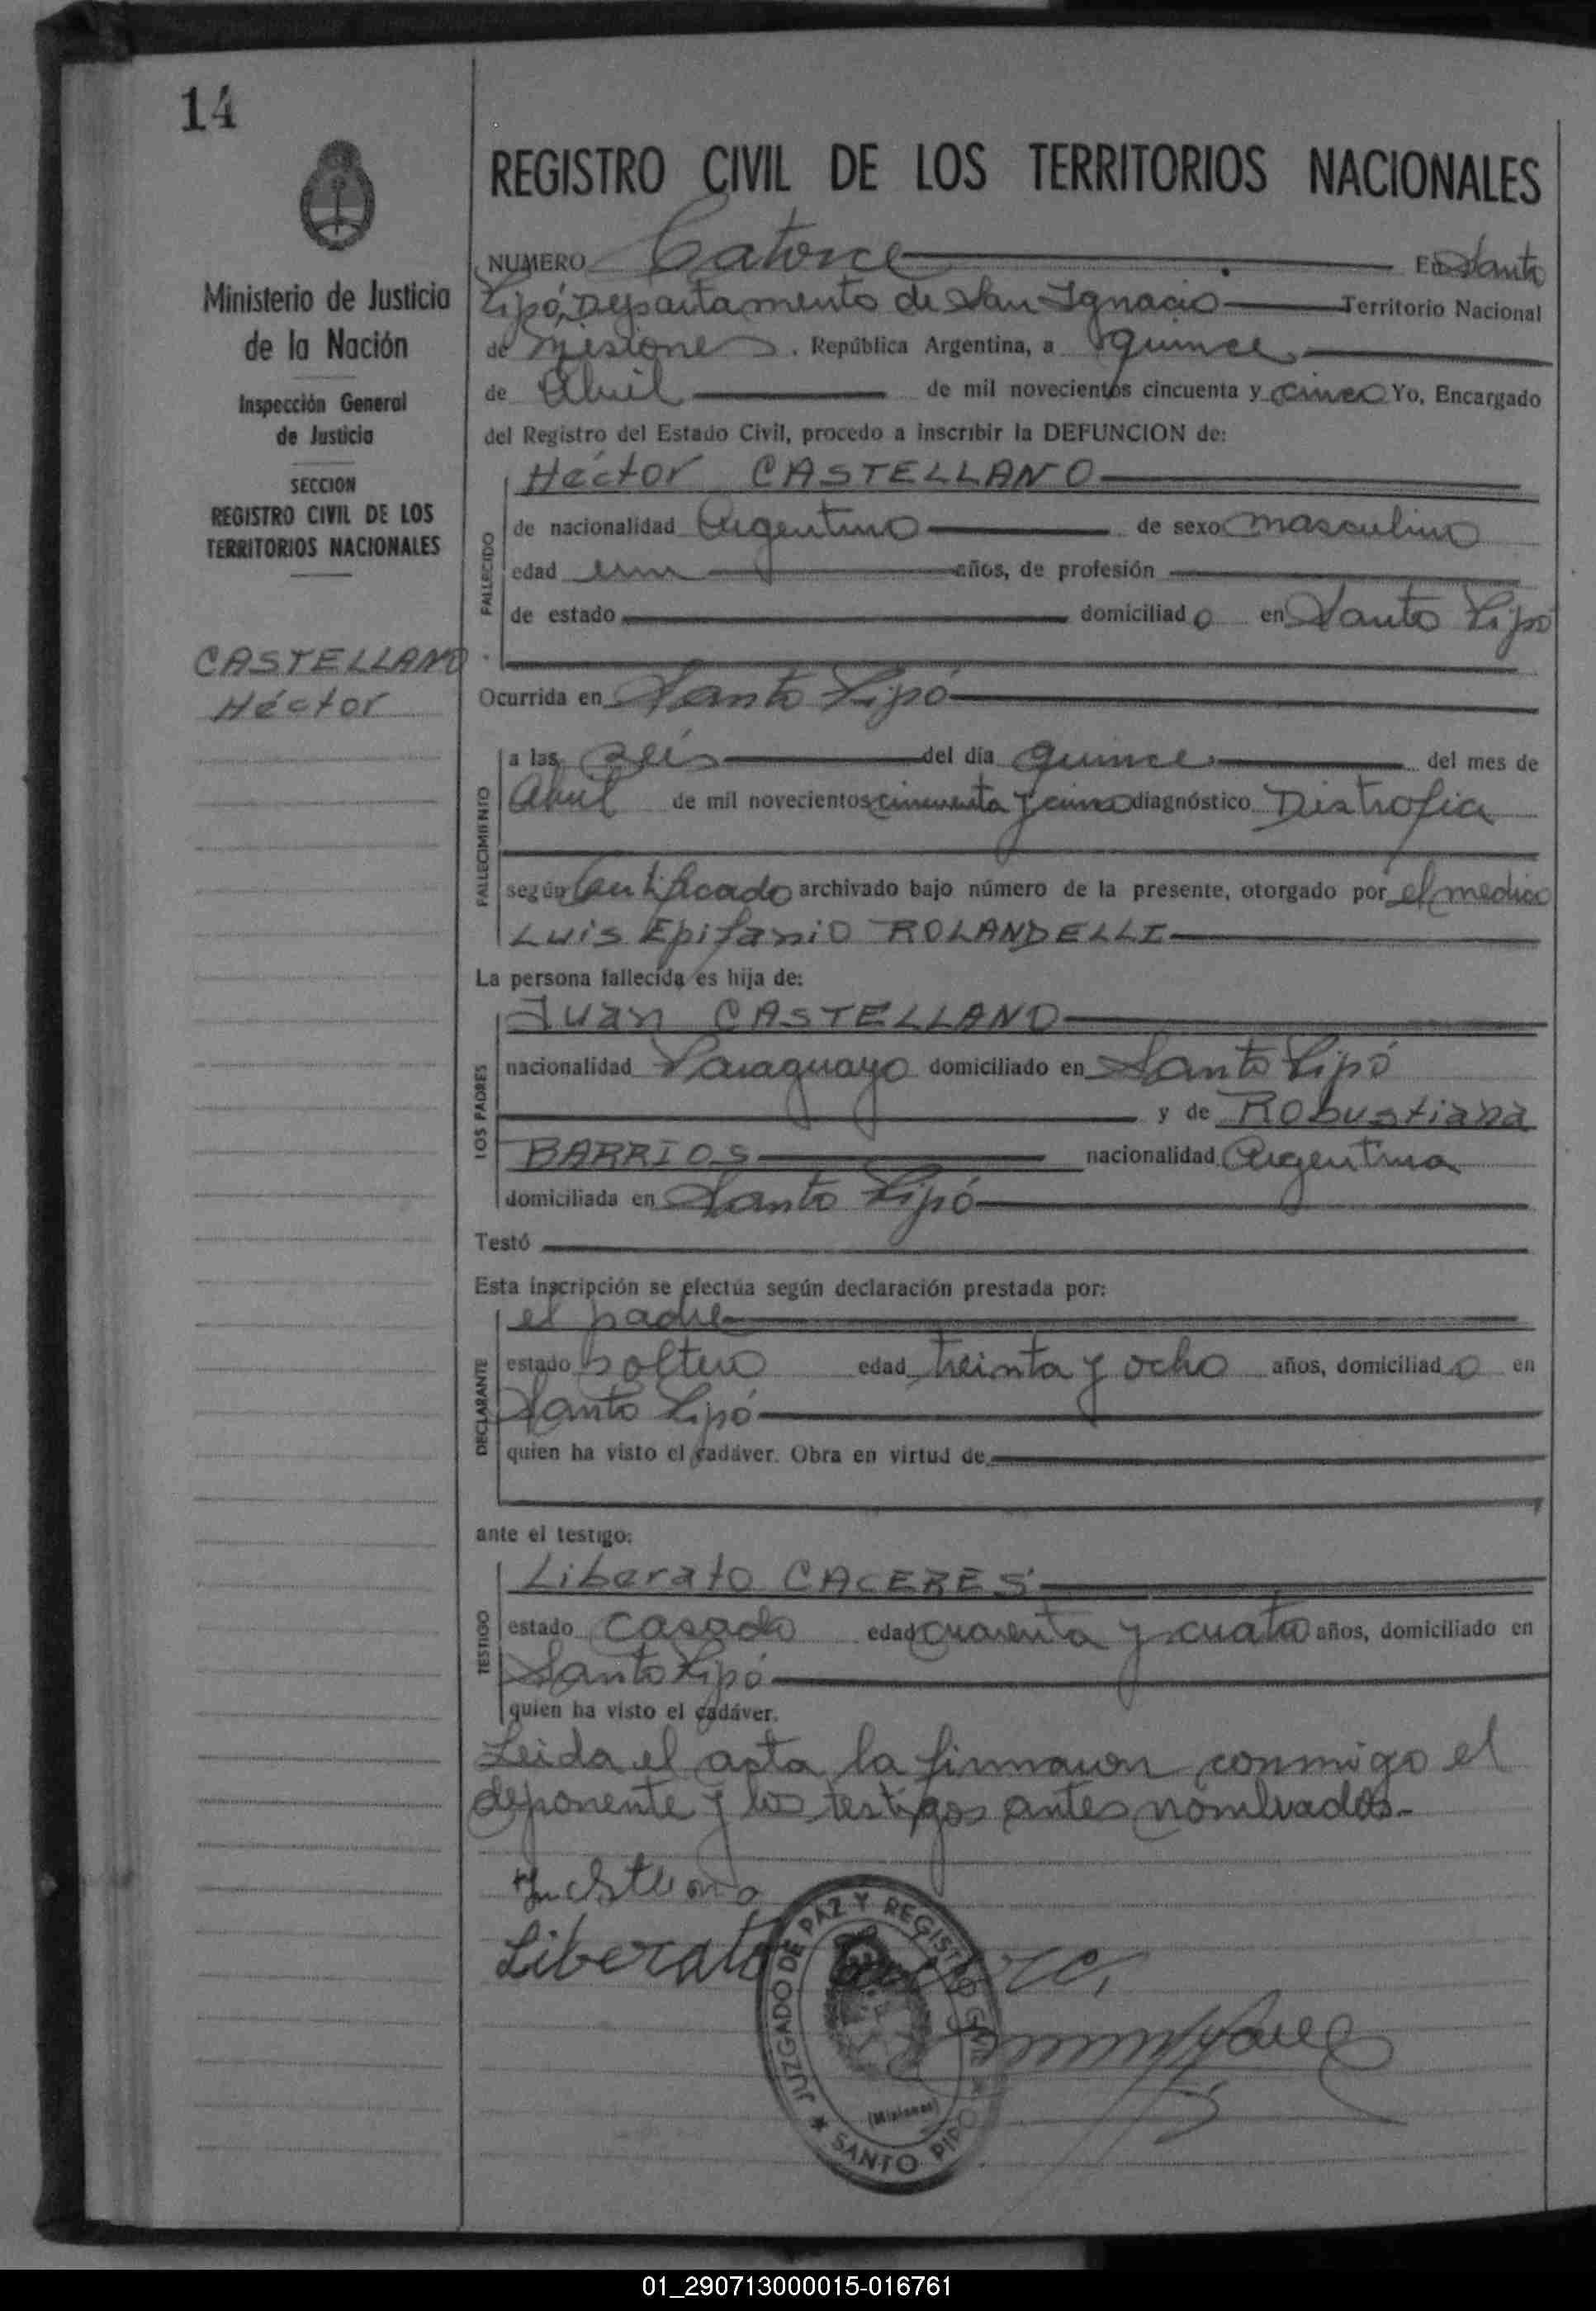 14
Ministerio de Justicia
de la Nación
Inspección General
de Justicia
SECCION
REGISTRO CIVIL DE LOS
TERRITORIOS NACIONALES
CASTELLANO
Héctor
REGISTRO CIVIL DE LOS TERRITORIOS NACIONALES
NUMERO Catorce En Santo
Pipó, Departamento de San Ignacio Territorio Nacional
de Misiones. República Argentina, a quince
de Abril de mil novecientos cincuenta y cinco Yo, Encargado
del Registro del Estado Civil, procedo a inscribir la DEFUNCION de:
Héctor CASTELLANO
FALLECIDO
de nacionalidad Argentino de sexo masculino
edad un años, de profesión
de estado domiciliado en Santo Pipó
Ocurrida en Santo Pipó
FALLECIMIENTO
a las seis del día quince del mes de
Abril de mil novecientos cincuenta y cinco diagnóstico Distrofia
según Certificado archivado bajo número de la presente, otorgado por el medico
Luis Epifanio ROLANDELLI
La persona fallecida es hija de:
Juan CASTELLANO
LOS PADRES
nacionalidad Paraguayo domiciliado en Santo Pipó
y de Robustiana
BARRIOS nacionalidad Argentina
domiciliada en Santo Pipó
Testó
Esta inscripción se efectúa según declaración prestada por:
el padre
DECLARANTE
estado soltero edad treinta y ocho años, domiciliado en
Santo Pipó
quien ha visto el cadáver. Obra en virtud de
ante el testigo:
Liberato CACERES
TESTIGO
estado casado edad cuarenta y cuatro años, domiciliado en
Santo Pipó
quien ha visto el cadáver.
Leida el acta la firmaron conmigo el
deponente y los testigos antes nombrados.-
Liberato
JUZGADO DE PAZ Y REGISTRO CIVIL
(Misiones)
SANTO PIPO
01_290713000015-016761